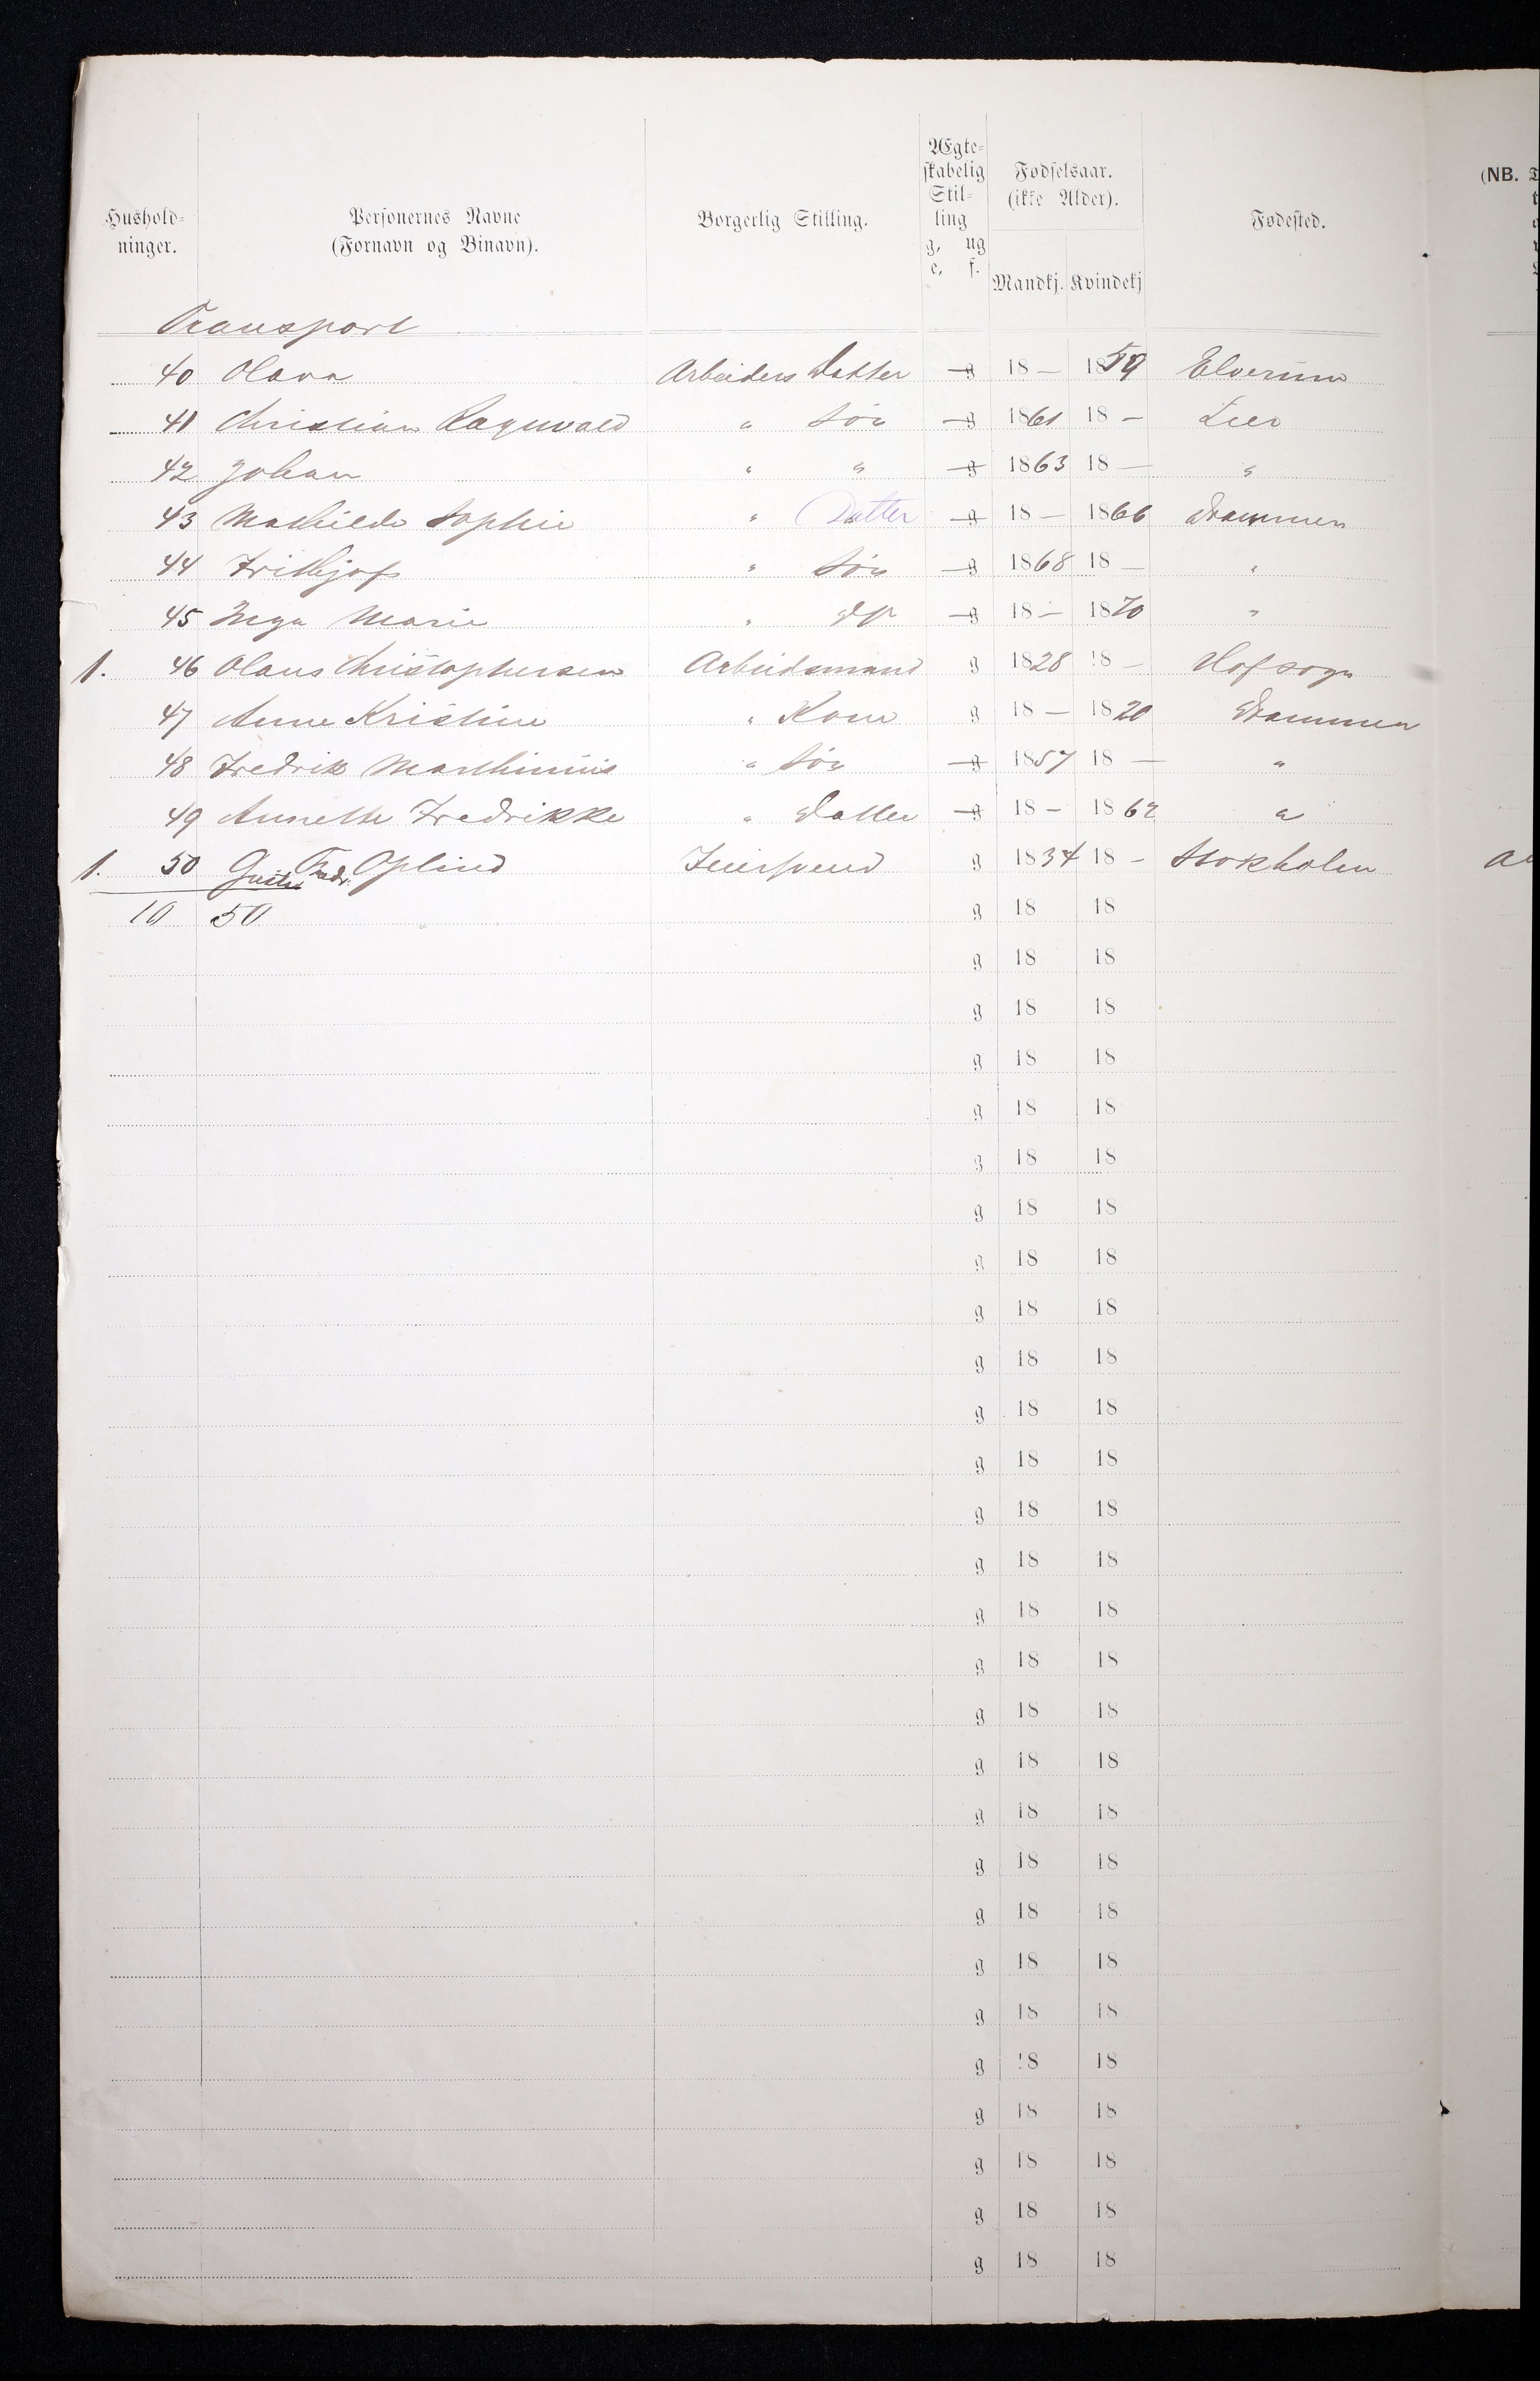 Hushold-ninger. Personernes Navne (Fornavn og Binavn). Borgerlig Stilling. Ægte-skabelig Stil-ling g, ug e, f. Fødselsaar. (ikke Alder). Mandkj. Kvindekj Fødested. (NB.
Transport
40 Olava Arbeiders Datter g 18 — 1859 Elverum
41 Christian Ragnvald " Søn g 1861 18 — Lier
42 Johan " " g 1863 18 — "
43 Mathilde Sophie " Datter g 18 — 1866 Drammen
44 Frithjof " Søn g 1868 18 — "
45 Inga Marie " g 18 — 1870 "
1. 46 Olaus Christophersen Arbeidsmand g 1828 18 — Hofsogn
47 Anne Kristine " Kone g 18 — 1820 Drammen
48 Fredrik Marthinius " Søn g 1857 18 — "
49 Annette Fredrikke " Datter g 18 — 1862 "
1. 50 Gustav Fredr. Oplind Feiersvend g 1834 18 — Stokholm
10 50 g 18 18
g 18 18
g 18 18
g 18 18
g 18 18
g 18 18
g 18 18
g 18 18
g 18 18
g 18 18
g 18 18
g 18 18
g 18 18
g 18 18
g 18 18
g 18 18
g 18 18
g 18 18
g 18 18
g 18 18
g 18 18
g 18 18
g 18 18
g 18 18
g 18 18
g 18 18
g 18 18
g 18 18